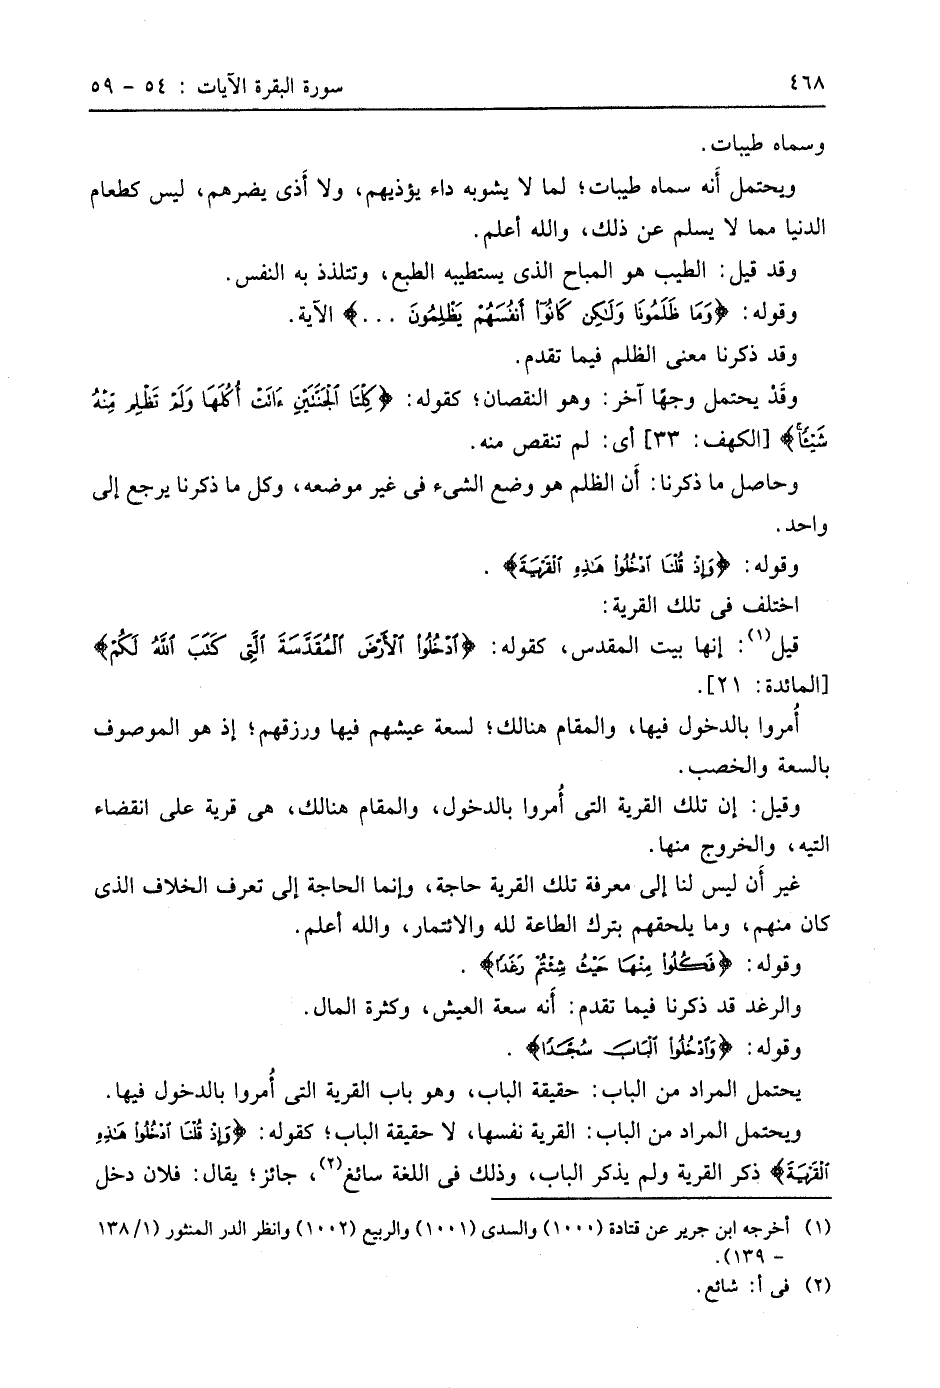 ٤٦٨ سورة البقرة الآيات : ٥٤ - ٥٩
وسماه طيبات.
ويحتمل أَنه سماه طيبات؛ لما لا يشوبه داء يؤذيهم، ولا أَذى يضرهم، ليس كطعام
الدنيا مما لا يسلم عن ذلك، والله أعلم.
وقد قيل: الطيب هو المباح الذى يستطيبه الطبع، وتتلذذ به النفس.
وقوله: ﴿وَمَا ظَلَمُونَا وَلَٰكِن كَانُوٓا۟ أَنفُسَهُمْ يَظْلِمُونَ ...﴾ الآية.
وقد ذكرنا معنى الظلم فيما تقدم.
وقَدْ يحتمل وجهًا آخر: وهو النقصان؛ كقوله: ﴿كِلْتَا ٱلْجَنَّتَيْنِ ءَاتَتْ أُكُلَهَا وَلَمْ تَظْلِم مِّنْهُ
شَيْـًٔا﴾ [الكهف: ٣٣] أى: لم تنقص منه.
وحاصل ما ذكرنا: أَن الظلم هو وضع الشىء فى غير موضعه، وكل ما ذكرنا يرجع إلى
واحد.
وقوله: ﴿وَإِذْ قُلْنَا ٱدْخُلُوا۟ هَٰذِهِ ٱلْقَرْيَةَ﴾ .
اختلف فى تلك القرية:
قيل(١): إنها بيت المقدس، كقوله: ﴿ٱدْخُلُوا۟ ٱلْأَرْضَ ٱلْمُقَدَّسَةَ ٱلَّتِى كَتَبَ ٱللَّهُ لَكُمْ﴾
[المائدة: ٢١].
أُمروا بالدخول فيها، والمقام هنالك؛ لسعة عيشهم فيها ورزقهم؛ إذ هو الموصوف
بالسعة والخصب.
وقيل: إن تلك القرية التى أُمروا بالدخول، والمقام هنالك، هى قرية على انقضاء
التيه، والخروج منها.
غير أَن ليس لنا إلى معرفة تلك القرية حاجة، وإنما الحاجة إلى تعرف الخلاف الذى
كان منهم، وما يلحقهم بترك الطاعة لله والائتمار، والله أعلم.
وقوله: ﴿فَكُلُوا۟ مِنْهَا حَيْثُ شِئْتُمْ رَغَدًا﴾ .
والرغد قد ذكرنا فيما تقدم: أَنه سعة العيش، وكثرة المال.
وقوله: ﴿وَٱدْخُلُوا۟ ٱلْبَابَ سُجَّدًا﴾ .
يحتمل المراد من الباب: حقيقة الباب، وهو باب القرية التى أُمروا بالدخول فيها.
ويحتمل المراد من الباب: القرية نفسها، لا حقيقة الباب؛ كقوله: ﴿وَإِذْ قُلْنَا ٱدْخُلُوا۟ هَٰذِهِ
ٱلْقَرْيَةَ﴾ ذكر القرية ولم يذكر الباب، وذلك فى اللغة سائغ(٢)، جائز؛ يقال: فلان دخل
(١) أخرجه ابن جرير عن قتادة (١٠٠٠) والسدى (١٠٠١) والربيع (١٠٠٢) وانظر الدر المنثور (١/ ١٣٨
- ١٣٩).
(٢) فى أ: شائع.